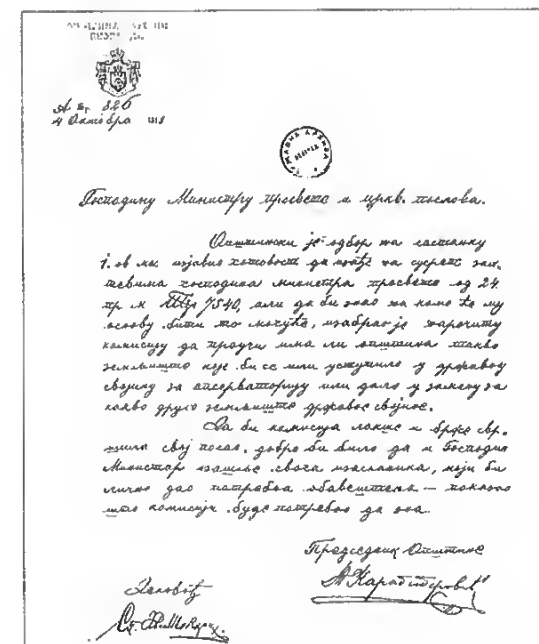 А Бр 326
4 Октобра
Господину Министру просвете и цркв. послова.
Општински је одбор на састанку
1. ов. мес изјавио готовост да изађе на сусрет зах-
тевима господина министра просвете од 24.
пр. м 7540, али да би знао на коме ће му
основу бити то могуће, изабрао је нарочиту
комисију да проучи има ли општина такво
земљиште које би се или уступило у државну
својину за опсерваторију или дало у замену за
какво друго земљиште државне својине.
Да би комисија лакше и брже свр-
шила свој посао, добро би било да и Господин
Министар изашље свога изасланика, који би
лично дао потребна обавештења — поклого
што комисији буде потребно да зна.
Председник Општине
Деловођ